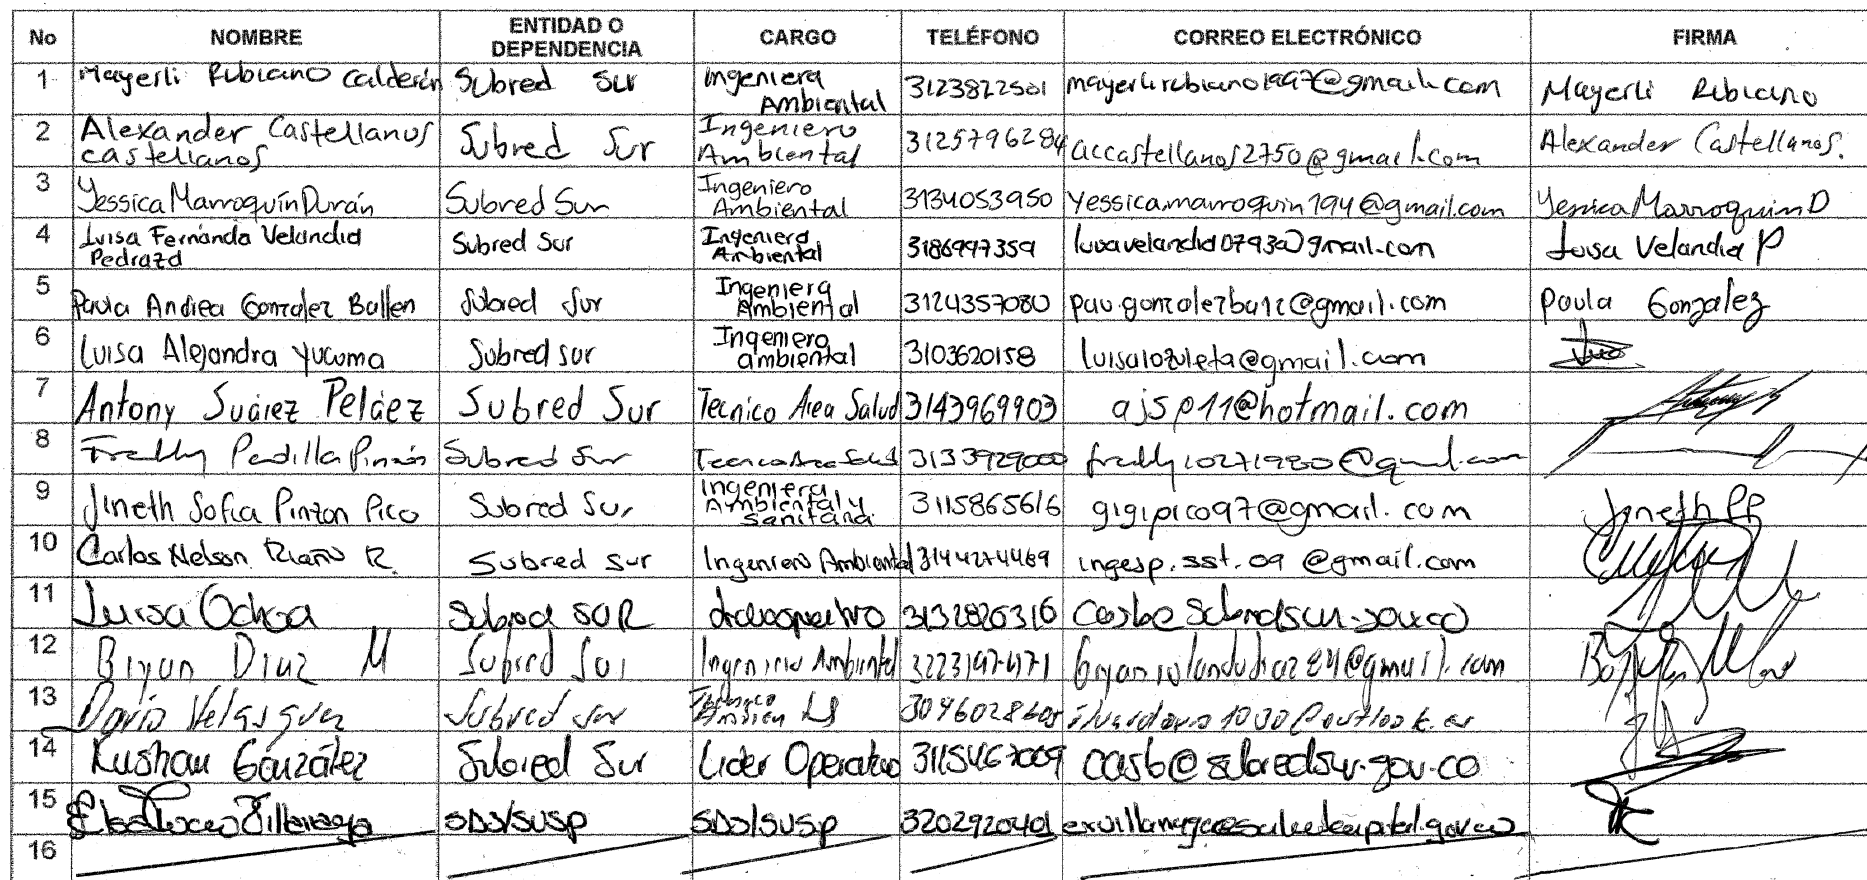 No NOMBRE ENTIDAD O DEPENDENCIA CARGO TELÉFONO CORREO ELECTRÓNICO FIRMA
1 Mayerli Rubiano Calderón Subred Sur Ingeniera Ambiental 3123822501 mayerlirubiano1997@gmail.com Mayerli Rubiano
2 Alexander Castellanos castellanos Subred Sur Ingeniero Ambiental 3125796284 accastellanos2750@gmail.com Alexander Castellanos.
3 Yessica Marroquín Durán Subred Sur Ingeniero Ambiental 3134053950 yessicamarroquin194@gmail.com Yessica Marroquin D
4 Luisa Fernanda Velandia Pedraza Subred Sur Ingeniera Ambiental 3186997359 luisavelandia0793@gmail.com Luisa Velandia P
5 Paula Andrea Gonzalez Ballen Subred Sur Ingeniera Ambiental 3124357080 Paula Gonzalez
6 Luisa Alejandra Yucuma Subred sur Ingeniera ambiental 3103620158 luisa10zuleta@gmail.com
7 Antony Suárez Peláez Subred Sur Tecnico Area Salud 3143969903 ajsp11@hotmail.com
8 Freddy Padilla Pinzón Subred Sur Tecnico Area Salud 3133929000 freddy10271980@gmail.com
9 Jineth Sofia Pinzon Pico Subred Sur Ingeniera Ambiental y Sanitaria 3115865616 gigipico97@gmail.com Jineth PP
10 Carlos Nelson Riaño R. Subred sur Ingeniero Ambiental 3144274469 ingesp.sst.09@gmail.com
11 Luisa Ochoa Subred SUR 3132826316
12 Bryan Diaz M Subred Sur Ingeniero Ambiental 3223197471
13 Dario Velasquez Subred Sur
14 Kushau González Subred Sur Lider Operativo 3115467009 casb@subredsur.gov.co
15 SDS/SUSP SDS/SUSP 3202920401
16